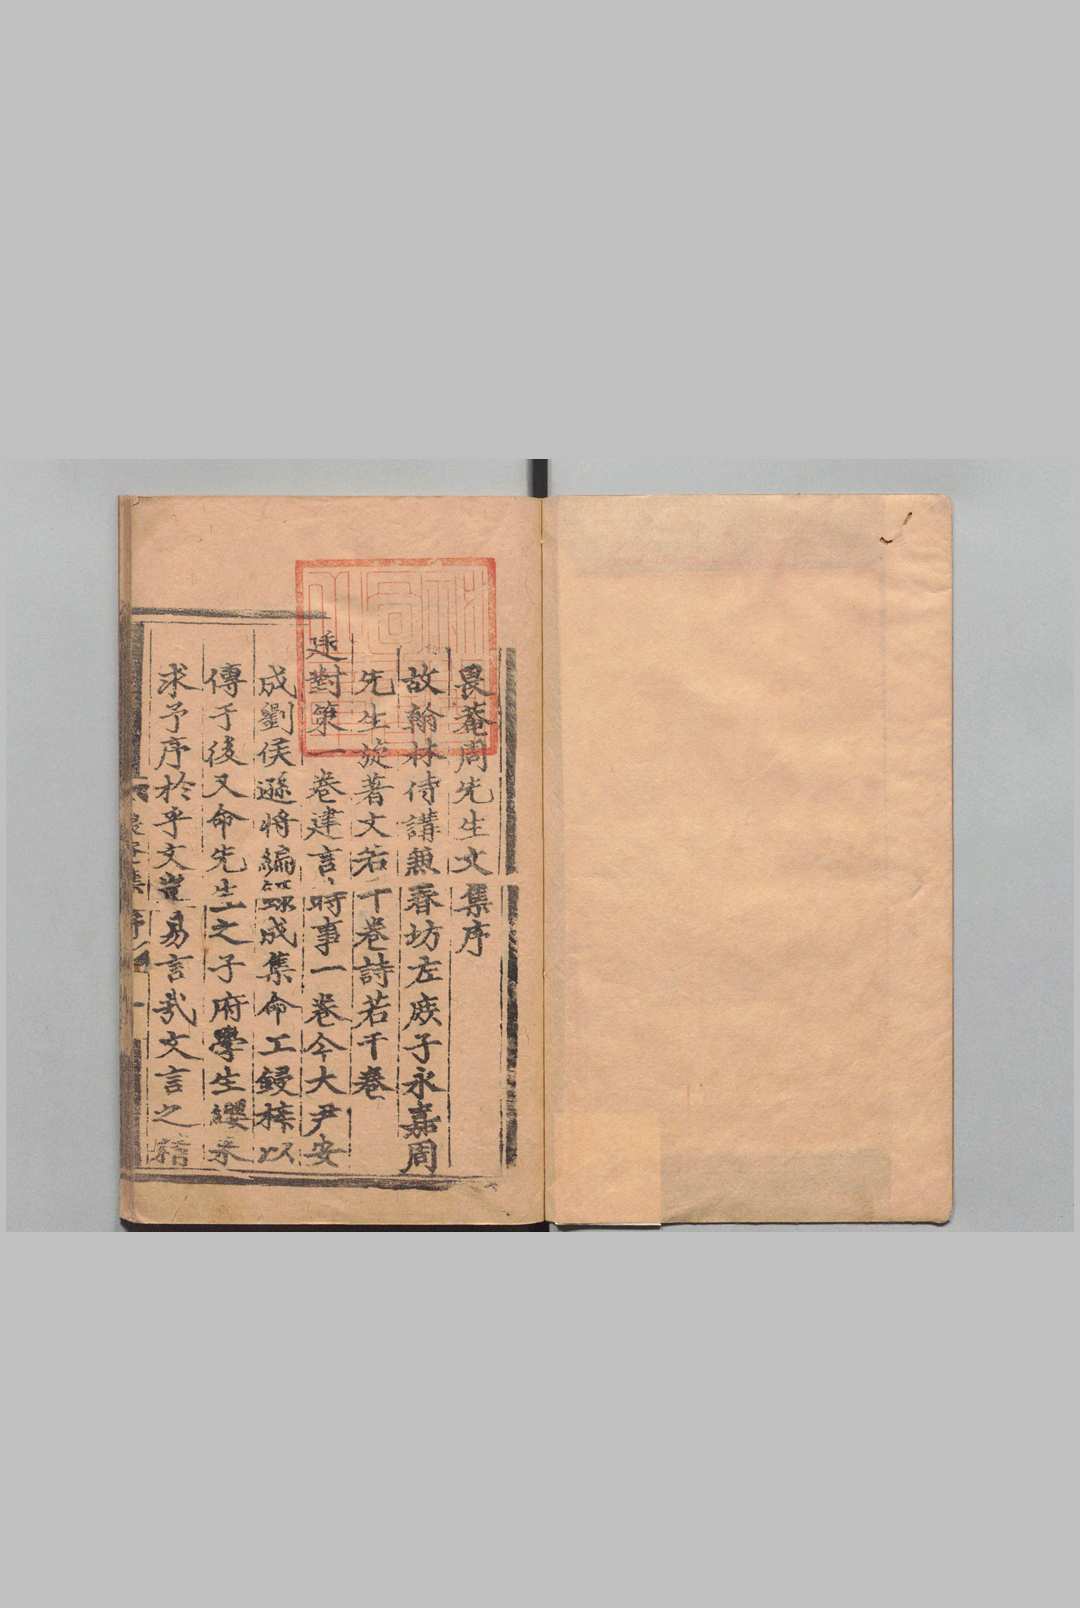 畏菴周先生文集序
故翰林侍講兼春坊左庻子永嘉周
先生旋著文若干卷詩若干卷
廷對策一卷建言時事一卷今大尹安
成劉侯遜將編録成集命工鋟梓以
傳于後又命先生之子府學生纓来
求予序於乎文豈易言哉文言之精